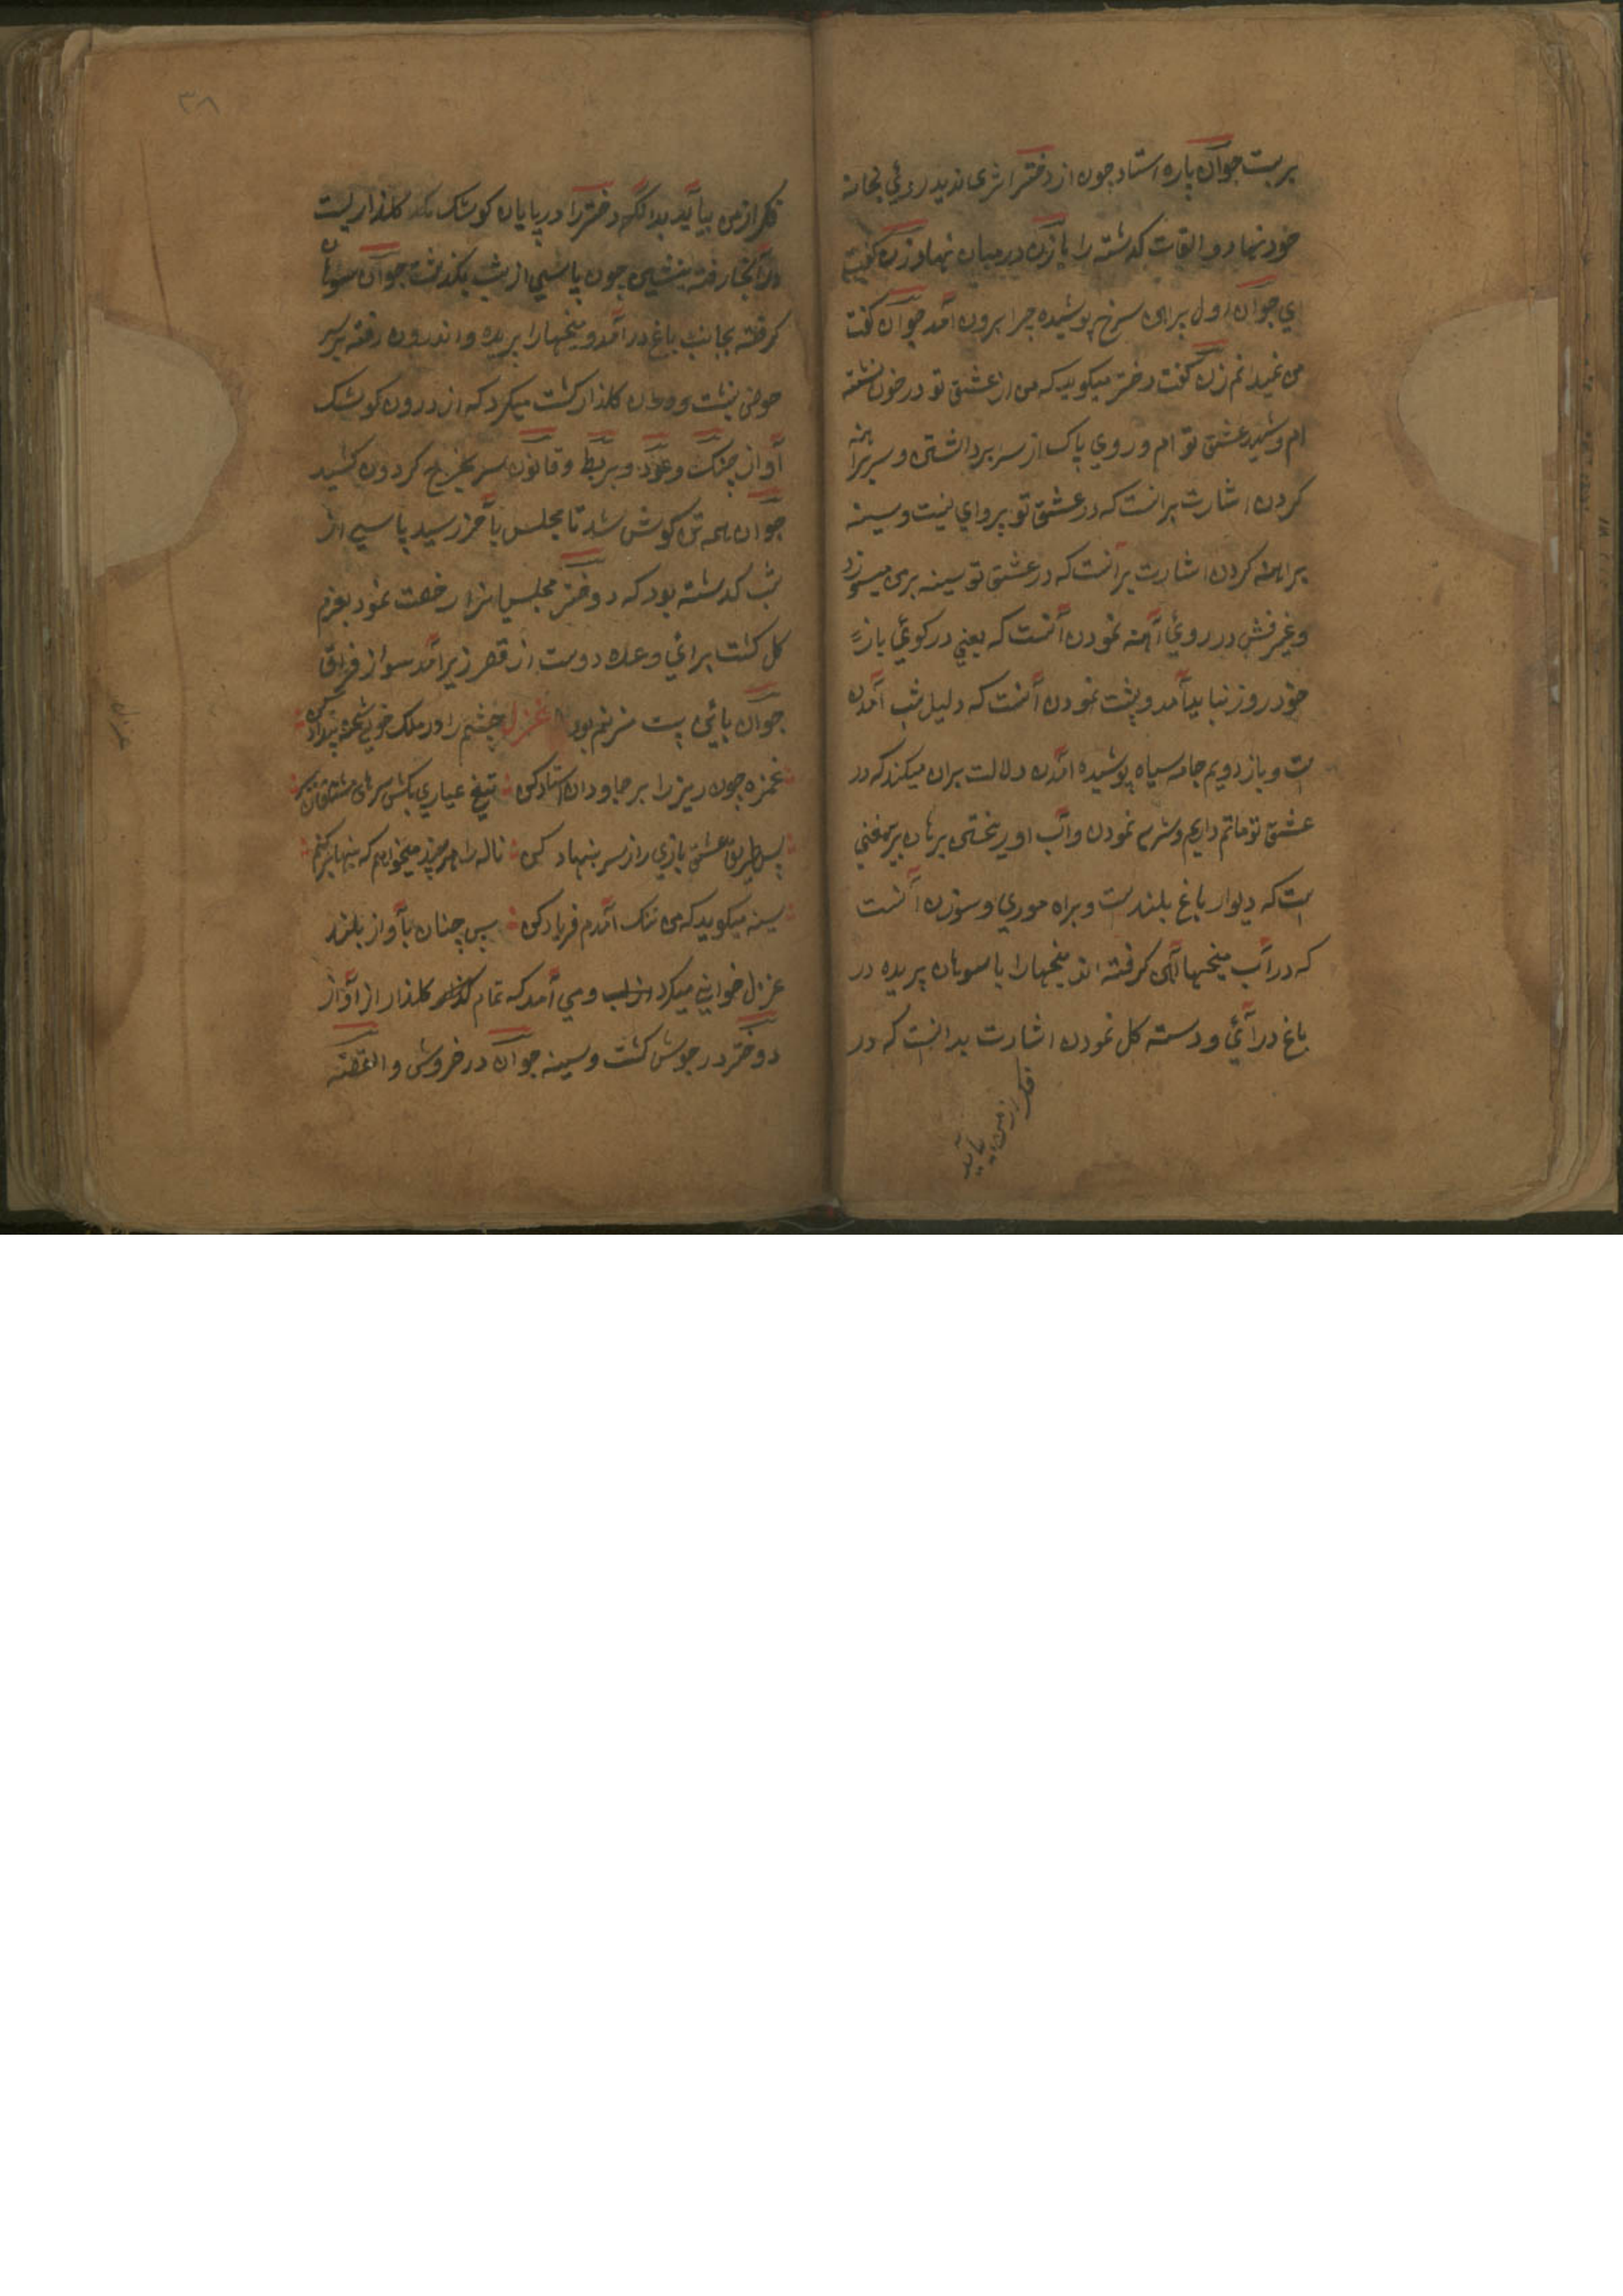 بربست جوان پاره استاد چون از دختر اثری ندید روی بخانه
خود نهاد و القات کدشته را بازن درمیان نهاد زن کفت
ای جوان اول پراهن سرخ پوشیده چرا برون آمد جوان کفت
من نمیدانم زن کفت دختر میکوید که من از عشق تو در خون نشسته
ام و شهید عشق تو ام و روی پاک از سر برداشتن و سر برهنه
کردن اشارت برانست که در عشق تو پروای نیست و سینه
براهنه کردن اشارت برآنست که در عشق تو سینه بری میسوزد
و غیر فش در روی آینه نمودن آنست که یعنی در کوی یار
خود روز نیابید آمد و پشت نمودن آنست که دلیل شب آمدن
ست و باز دویم جامه سیاه پوشیده آمدن دلالت بران میکند که در
عشق تو ماتم داریم و شرم نمودن و آب اوریختن برهان بر معنی
ست که دیوار باغ بلندست و براه موری و سوزن آنست
که در آب میخهاآهن کرفته اند میخها را با سوهان بریده در
باغ درآئی و دسته کل نمودن اشارت بدانست که در
فکر از من بیاید
۳۸
فکر از من بیاید بدانکه دختر را در پایان کوشک یک کلذاریست
در آنجا رفته بنشین چون پاسی از شب بکذشت جوان سوهان
کرفته بجانب باغ درآمد و میخها را بریده و اندرون رفته بر سر
حوض بنشست و دران کلذار کشت میکرد که از درون کوشک
آواز چنک و عود و بربط و قانون سر بچرخ کردون کشید
جوان همه تن کوش شد تا مجلس بآخر رسید پاسی از
شب کدشته بود که دوختر مجلسیانرا رخصت نمود بعزم
کل کشت برای وعده دوست از قصر زیر آمد سواز فراق
جوان بائی بیت مترنم بود غزل چشم را در ملک خوبی شحنه بیداد کن
غمزه چون ریز را بر جاودان استاد کن تیغ عیاری بکش سرهای مشتاقان بکر
پس طریق عشق بازی راز سر بنیاد کن ناله را هر چند میخواهم که پنهان برکشم
سینه میکوید که من تنک آمدم فریاد کن پس چنان بآواز بلند
غزل خوانی میکرد و می آمد که تمام کلذار از آواز
دوختر در جوش کشت و سینه جوان در خروش و القصه
غزل